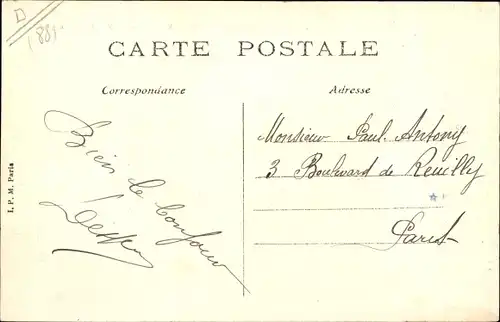 D
CARTE POSTALE
Correspondance
Adresse
Bien le bonjour
Monsieur Paul Antony
3 Boulevard de Reuilly
Paris
I. P. M. Paris